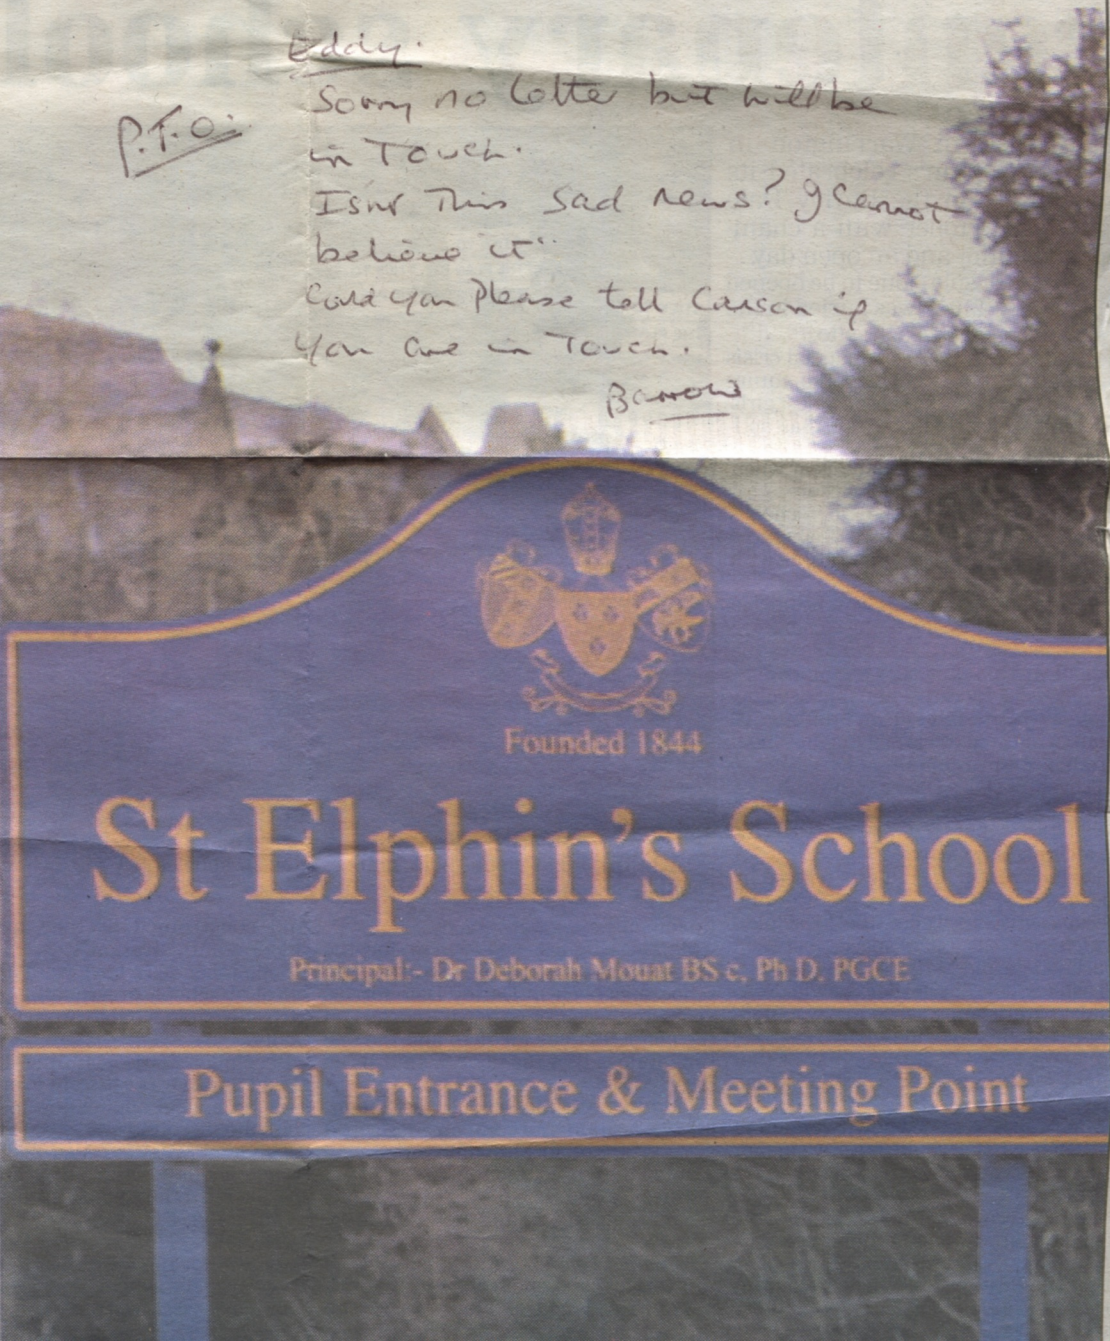 Eddy.
Sorry no letter but will be
P.T.O.
in Touch.
Isn't This sad news? I cannot
believe it
Could you Please tell Carson if
you are in Touch.
Barrow
Founded 1844
St Elphin's School
Principal:- Dr Deborah Mouat BS c, Ph D, PGCE
Pupil Entrance & Meeting Point